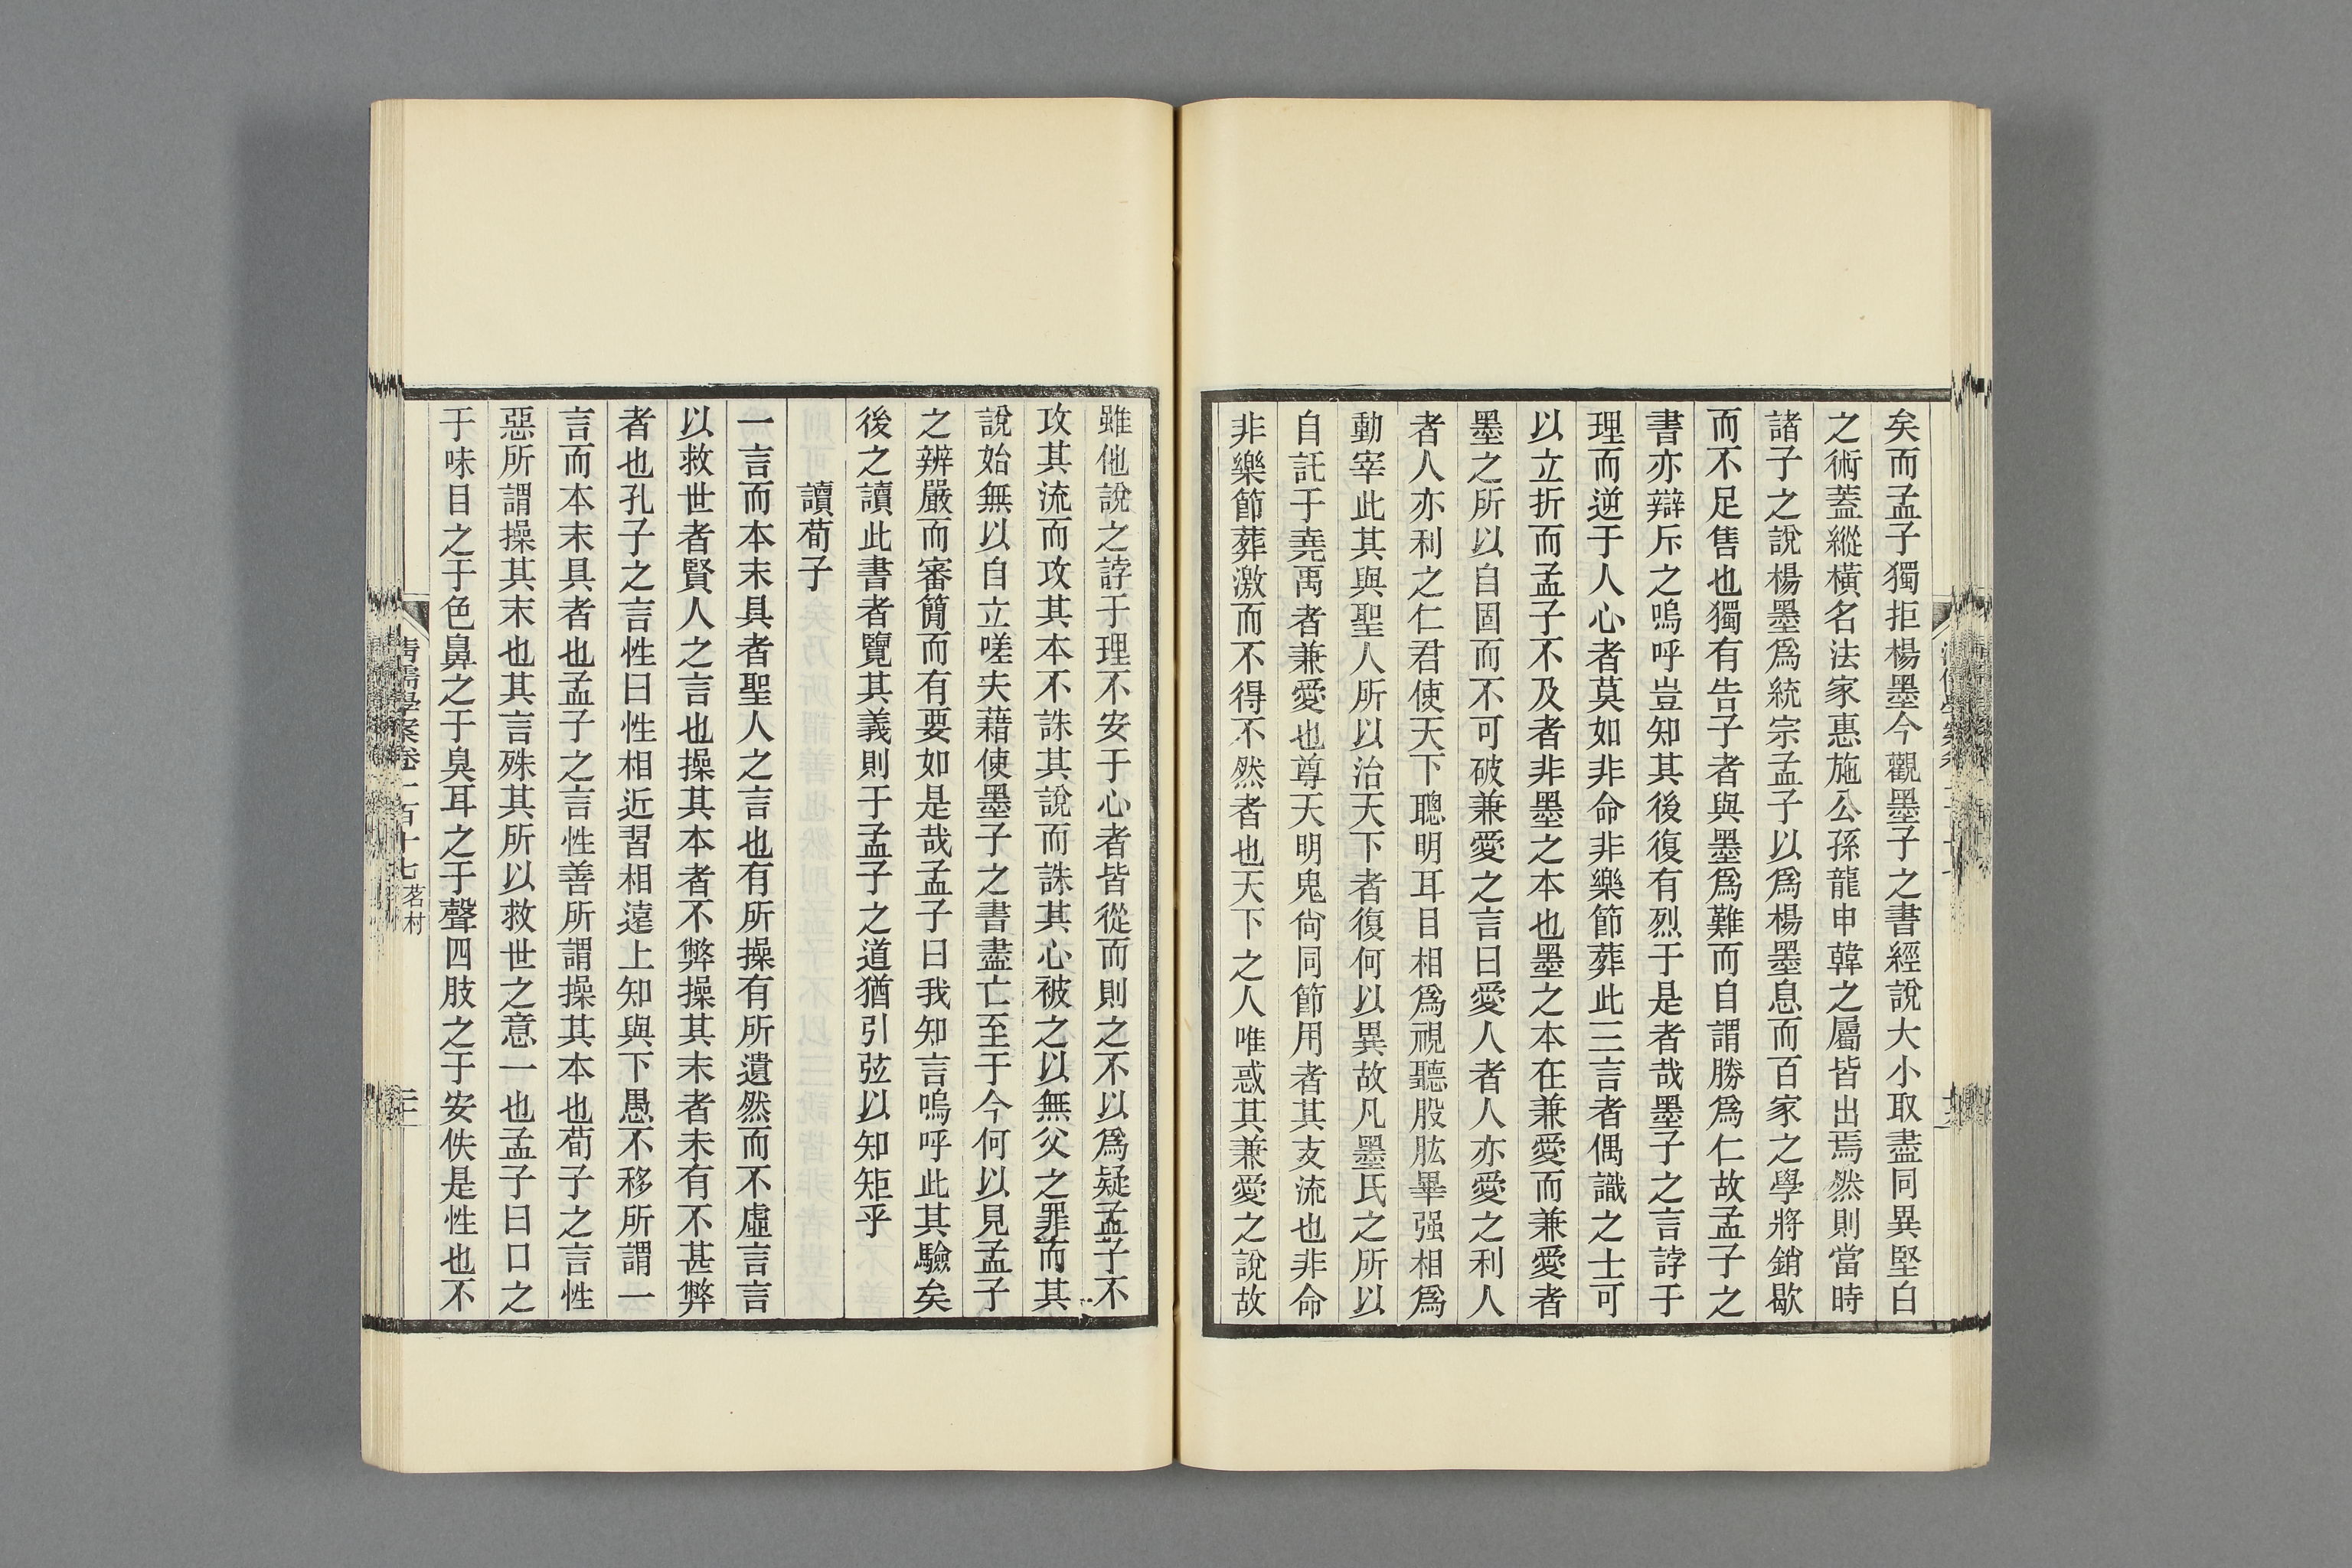 矣而孟子獨拒楊墨今觀墨子之書經說大小取盡同異堅白
之術蓋縱橫名法家惠施公孫龍申韓之屬皆出焉然則當時
諸子之說楊墨爲統宗孟子以爲楊墨息而百家之學將銷歇
而不足售也獨有告子者與墨爲難而自謂勝爲仁故孟子之
書亦辯斥之嗚呼豈知其後復有烈于是者哉墨子之言誖于
理而逆于人心者莫如非命非樂節葬此三言者偶識之士可
以立折而孟子不及者非墨之本也墨之本在兼愛而兼愛者
墨之所以自固而不可破兼愛之言曰愛人者人亦愛之利人
者人亦利之仁君使天下聰明耳目相爲視聽股肱畢强相爲
動宰此其與聖人所以治天下者復何以異故凡墨氏之所以
自託于堯禹者兼愛也尊天明鬼尙同節用者其支流也非命
非樂節葬激而不得不然者也天下之人唯惑其兼愛之說故
雖他說之誖于理不安于心者皆從而則之不以爲疑孟子不
攻其流而攻其本不誅其說而誅其心被之以無父之罪而其
說始無以自立嗟夫藉使墨子之書盡亡至于今何以見孟子
之辨嚴而審簡而有要如是哉孟子曰我知言嗚呼此其驗矣
後之讀此書者覽其義則于孟子之道猶引弦以知矩乎
讀荀子
一言而本末具者聖人之言也有所操有所遺然而不虛言言
以救世者賢人之言也操其本者不弊操其末者未有不甚弊
者也孔子之言性曰性相近習相遠上知與下愚不移所謂一
言而本末具者也孟子之言性善所謂操其本也荀子之言性
惡所謂操其末也其言殊其所以救世之意一也孟子曰口之
于味目之于色鼻之于臭耳之于聲四肢之于安佚是性也不
清儒學案卷一百十七 茗村